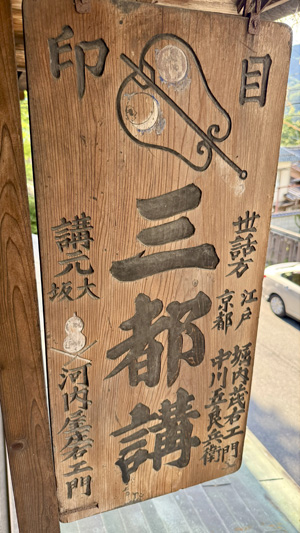 目印
世話方
江戸 堀内茂右エ門
京都 中川五良兵衛
三都講
講元
大坂
河内屋庄右エ門